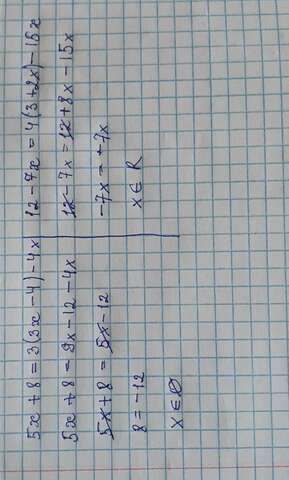 5x + 8 = 3(3x - 4) - 4x
5x + 8 = 9x - 12 - 4x
5x + 8 = 5x - 12
8 = -12
x ∈ ∅
12 - 7x = 4(3 + 2x) - 15x
12 - 7x = 12 + 8x - 15x
-7x = -7x
x ∈ R